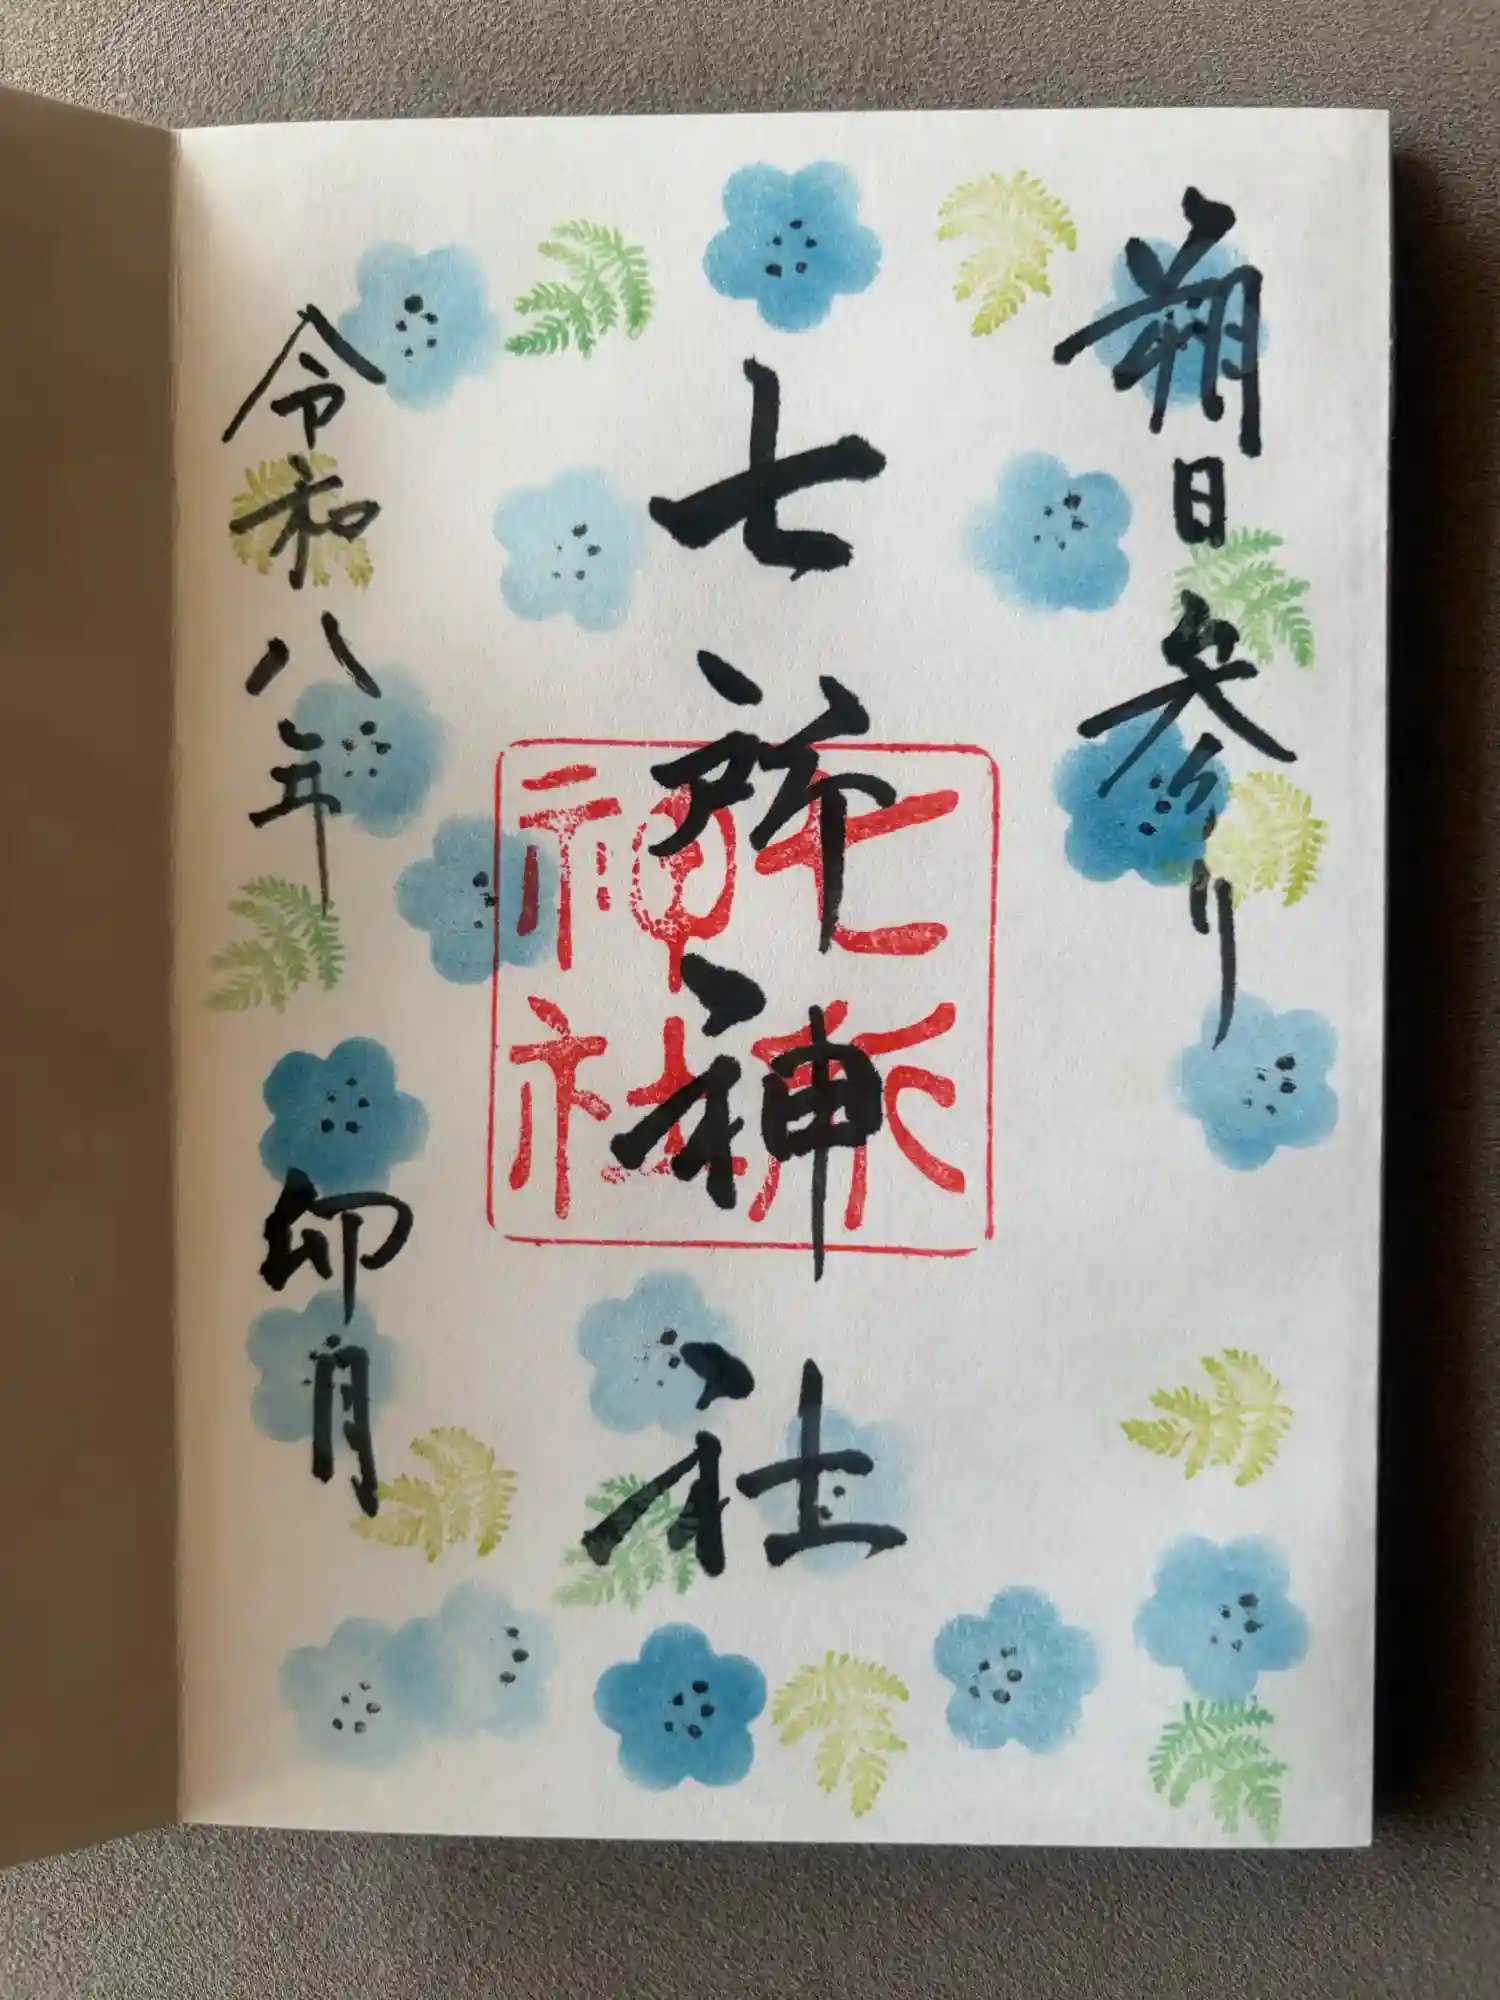 朔日参り
七所神社
七所神社
令和八年 卯月